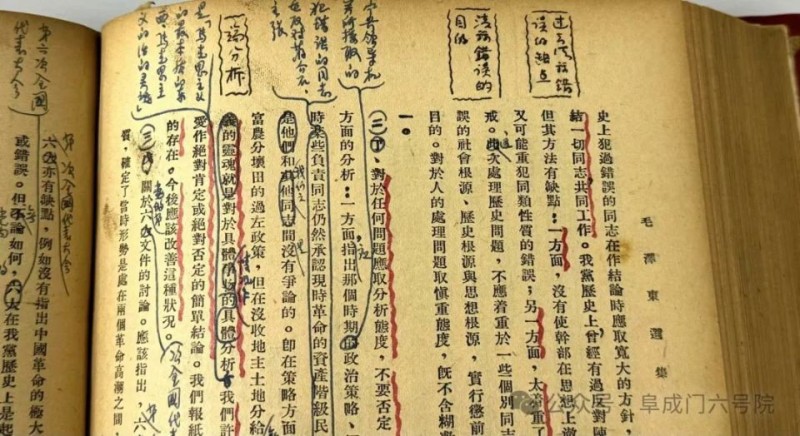 毛澤東選集
史上犯過錯誤的同志在作結論時應取寬大的方針,
結一切同志共同工作。我黨歷史上曾經有過反對陳
但其方法有缺點:一方面,沒有使幹部在思想上澈
又可能重犯同類性質的錯誤;另一方面,太着重了
戒。此次處理歷史問題,不應着重於一些個別同志
誤的社會根源、歷史根源與思想根源,實行懲前
目的。對於人的處理問題取慎重態度,旣不含糊
一。
(二)、對於任何問題應取分析態度,不要否定
方面的分析:一方面指出那個時期的政治策略、
時某些負責同志仍然承認現時革命的資產階級民
是他們和其他同志間沒有爭論的。卽在策略方面
富農分壞田的過左政策,但在沒收地主土地分給
義的靈魂就是對於具體事物的具體分析。我們許
愛作絕對肯定或絕對否定的簡單結論。我們報紙
的存在。今後應該改善這種狀況。
(三)、關於六大文件的討論。應該指出,六
質,確定了當時形勢是處在兩個革命高潮之間,
的缺点
錯誤的
目的
分析
犯錯誤的同志
主張
馬克思主义
的最本質的東
西,馬克思主
义的活的灵魂
第六次全國
代表大会
六大亦有缺點,例如沒有指出中國革命的極大
或錯誤。但不論如何,六大在我黨歷史上是起
公众号·阜成门六号院